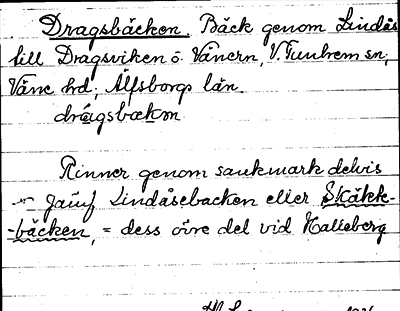 Dragsbäcken. Bäck genom Lindås
till Dragsviken ö. Vänern, V. Tunhem sn;
Väne hd; Älfsborgs län.
drágsbækən
Rinner genom sankmark delvis
Jämf Lindåsebacken eller Skäkk-
-bäcken, = dess övre del vid Halleberg